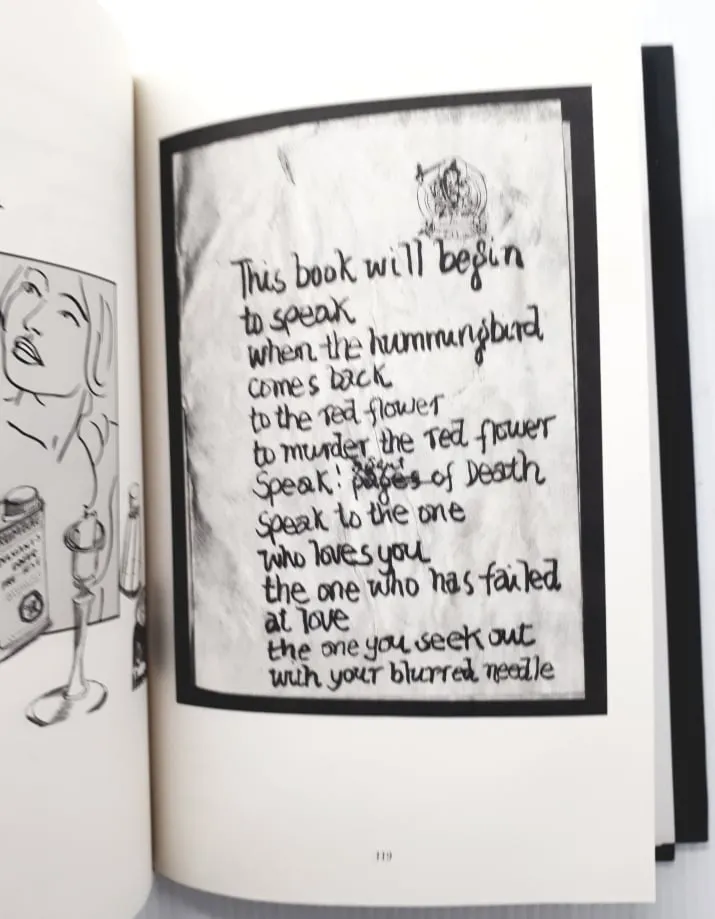 This book will begin
to speak
when the hummungbird
comes back
to the red flower
to murder the red flower
Speak! pages of Death
speak to the one
who loves you
the one who has failed
at love
the one you seek out
with your blurred needle
119